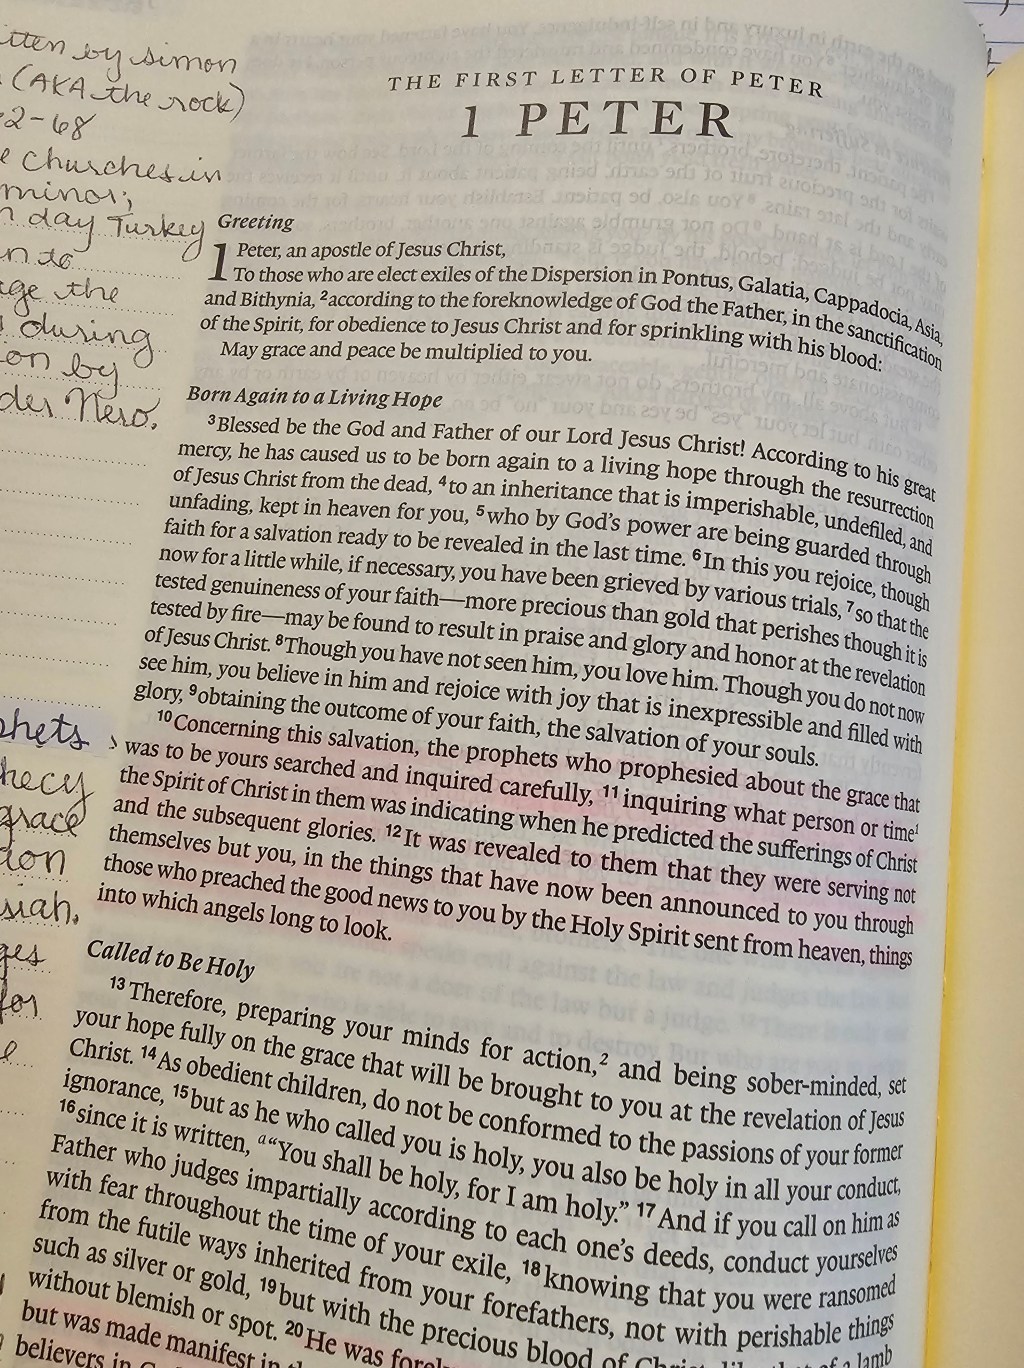 THE FIRST LETTER OF PETER
1 PETER
Greeting
1 Peter, an apostle of Jesus Christ,
To those who are elect exiles of the Dispersion in Pontus, Galatia, Cappadocia, Asia,
and Bithynia, 2according to the foreknowledge of God the Father, in the sanctification
of the Spirit, for obedience to Jesus Christ and for sprinkling with his blood:
May grace and peace be multiplied to you.
Born Again to a Living Hope
3Blessed be the God and Father of our Lord Jesus Christ! According to his great
mercy, he has caused us to be born again to a living hope through the resurrection
of Jesus Christ from the dead, 4to an inheritance that is imperishable, undefiled, and
unfading, kept in heaven for you, 5who by God's power are being guarded through
faith for a salvation ready to be revealed in the last time. 6In this you rejoice, though
now for a little while, if necessary, you have been grieved by various trials, 7so that the
tested genuineness of your faith—more precious than gold that perishes though it is
tested by fire—may be found to result in praise and glory and honor at the revelation
of Jesus Christ. 8Though you have not seen him, you love him. Though you do not now
see him, you believe in him and rejoice with joy that is inexpressible and filled with
glory, 9obtaining the outcome of your faith, the salvation of your souls.
10Concerning this salvation, the prophets who prophesied about the grace that
was to be yours searched and inquired carefully, 11inquiring what person or time1
the Spirit of Christ in them was indicating when he predicted the sufferings of Christ
and the subsequent glories. 12It was revealed to them that they were serving not
themselves but you, in the things that have now been announced to you through
those who preached the good news to you by the Holy Spirit sent from heaven, things
into which angels long to look.
Called to Be Holy
13Therefore, preparing your minds for action,2 and being sober-minded, set
your hope fully on the grace that will be brought to you at the revelation of Jesus
Christ. 14As obedient children, do not be conformed to the passions of your former
ignorance, 15but as he who called you is holy, you also be holy in all your conduct,
16since it is written, a"You shall be holy, for I am holy." 17And if you call on him as
Father who judges impartially according to each one's deeds, conduct yourselves
with fear throughout the time of your exile, 18knowing that you were ransomed
from the futile ways inherited from your forefathers, not with perishable things
such as silver or gold, 19but with the precious blood of Christ, like that of a lamb
without blemish or spot. 20He was
but was made manifest in
believers in
itten by simon
(AKA the rock)
2-68
e churches in
minor;
n day Turkey
n to
age the
s during
on by
der Nero.
phets
hecy
grace
tion
siah.
ges
for